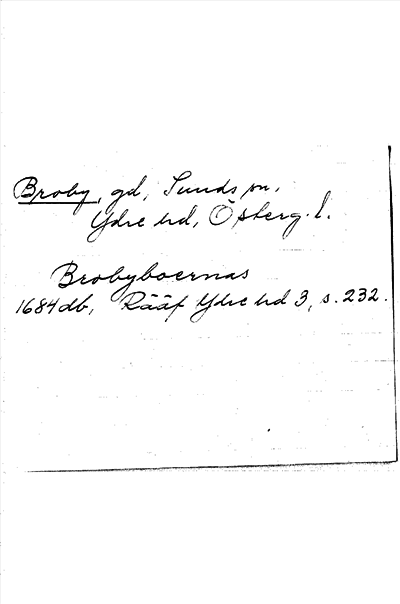 Broby, gd, Sunds sn,
Ydre hd, Österg. l.
Brobyboernas
1684 db, Rääf Ydre hd 3, s. 232.